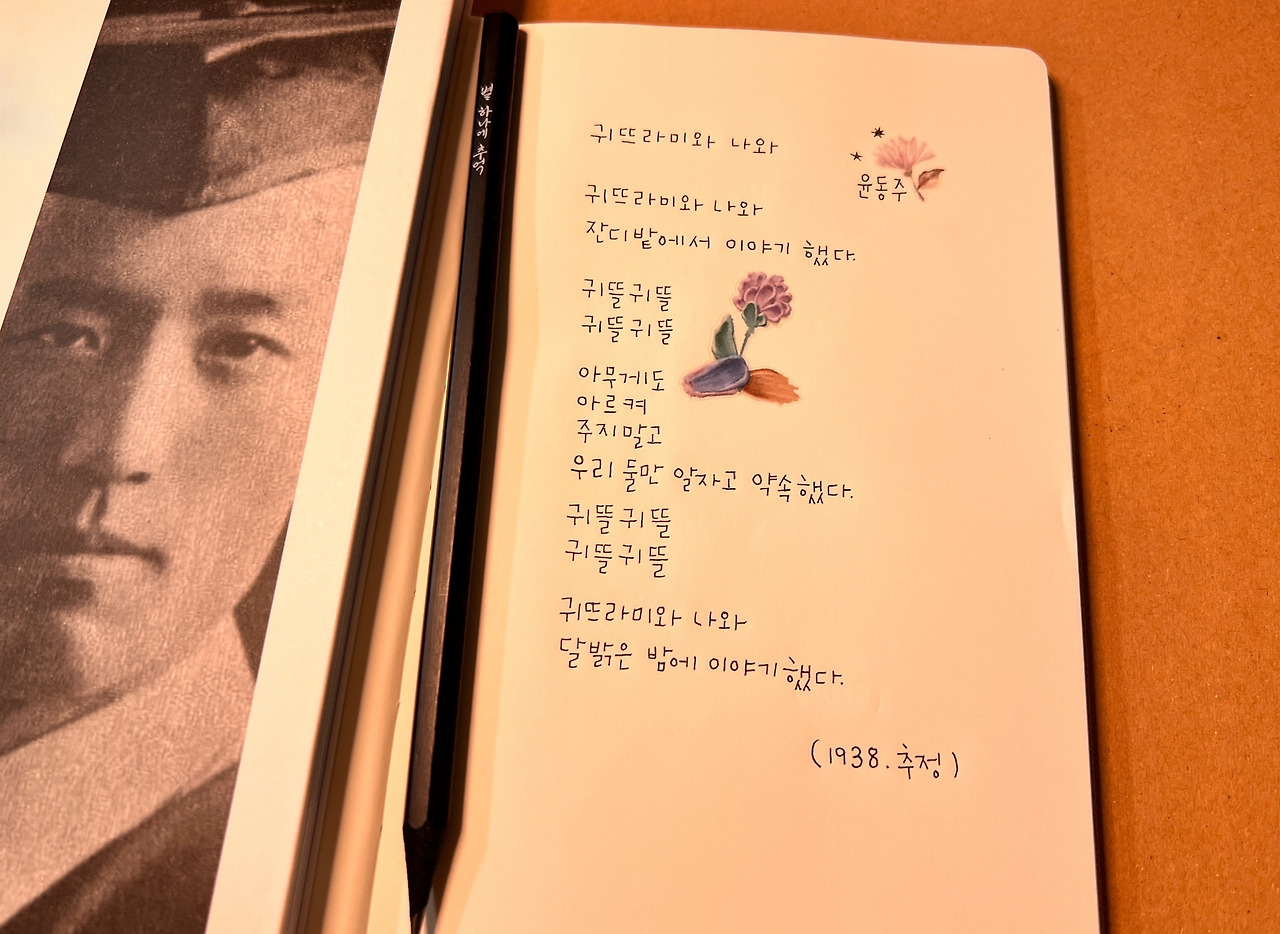 별 하나에 추억
귀뜨라미와 나와
윤동주
귀뜨라미와 나와
잔디밭에서 이야기 했다.
귀뜰귀뜰
귀뜰귀뜰
아무게도
아르켜
주지말고
우리 둘만 알자고 약속했다.
귀뜰귀뜰
귀뜰귀뜰
귀뜨라미와 나와
달밝은 밤에 이야기했다.
(1938. 추정)